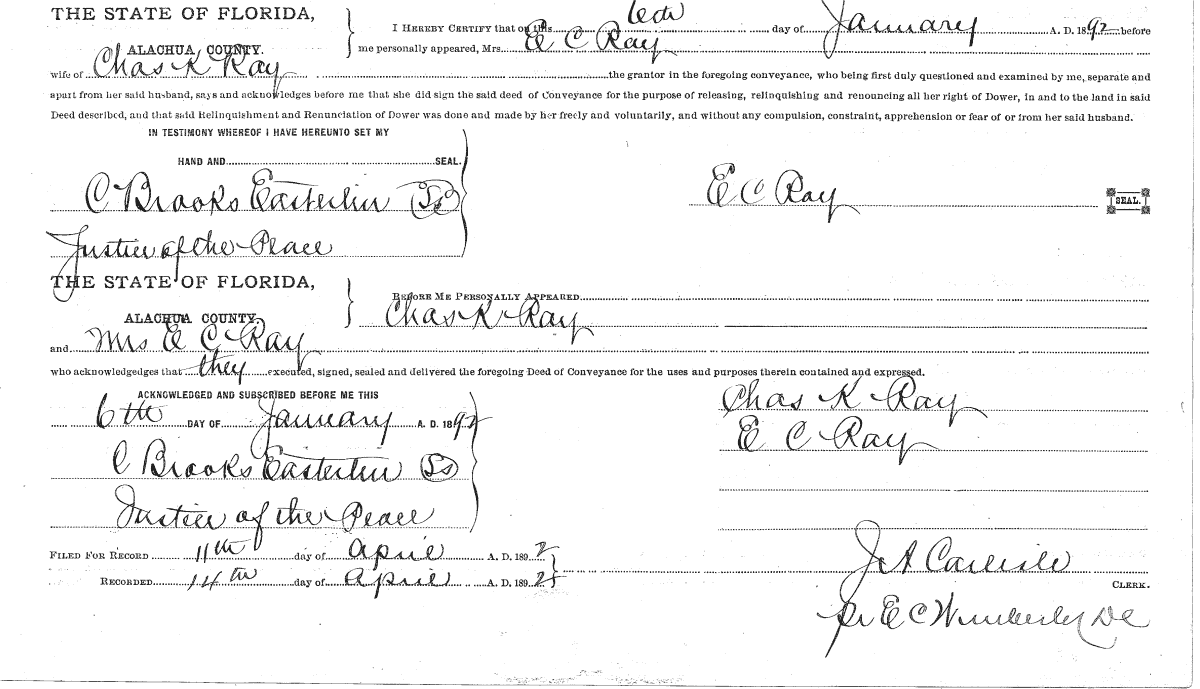 THE STATE OF FLORIDA,
ALACHUA COUNTY.
I HEREBY CERTIFY that on this 6th day of January A. D. 1892 before
me personally appeared, Mrs. E C Ray
wife of Chas K Ray the grantor in the foregoing conveyance, who being first duly questioned and examined by me, separate and
apart from her said husband, says and acknowledges before me that she did sign the said deed of Conveyance for the purpose of releasing, relinquishing and renouncing all her right of Dower, in and to the land in said
Deed described, and that said Relinquishment and Renunciation of Dower was done and made by her freely and voluntarily, and without any compulsion, constraint, apprehension or fear of or from her said husband.
IN TESTIMONY WHEREOF I HAVE HEREUNTO SET MY
HAND AND SEAL.
C Brooks Easterlin
E C Ray SEAL.
Justice of the Peace
THE STATE OF FLORIDA,
ALACHUA COUNTY,
BEFORE ME PERSONALLY APPEARED
Chas K Ray
and Mrs E C Ray
who acknowledgedges that they executed, signed, sealed and delivered the foregoing Deed of Conveyance for the uses and purposes therein contained and expressed.
ACKNOWLEDGED AND SUBSCRIBED BEFORE ME THIS
6th DAY OF January A. D. 1892
C Brooks Easterlin
Justice of the Peace
Chas K Ray
E C Ray
FILED FOR RECORD 11th day of April A. D. 1892
RECORDED 14th day of April A. D. 1892
J A Carlisle
CLERK.
pr E C Wimberley DC